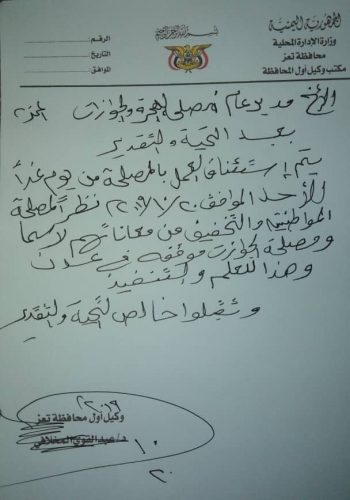 الجمهورية اليمنية
وزارة الإدارة المحلية
محافظة تعز
مكتب وكيل أول المحافظة
بسم الله الرحمن الرحيم
الرقم
التاريخ
الموافق
الأخ مدير عام مصلحة الهجرة والجوازات
بعد التحية والتقدير
يتم إستئناف العمل بالمصلحة من يوم غداً
الأحد الموافق ٢٠١٩/١٠/٢٠ نظراً لمصلحة
المواطنين والتخفيف من معاناتهم لاسيما
ومصلحة الجوازات موقفه في عدن
وهذا للعلم والتنفيذ
وتقبلوا خالص التحية والتقدير
وكيل أول محافظة تعز
د/عبدالقوي المخلافي